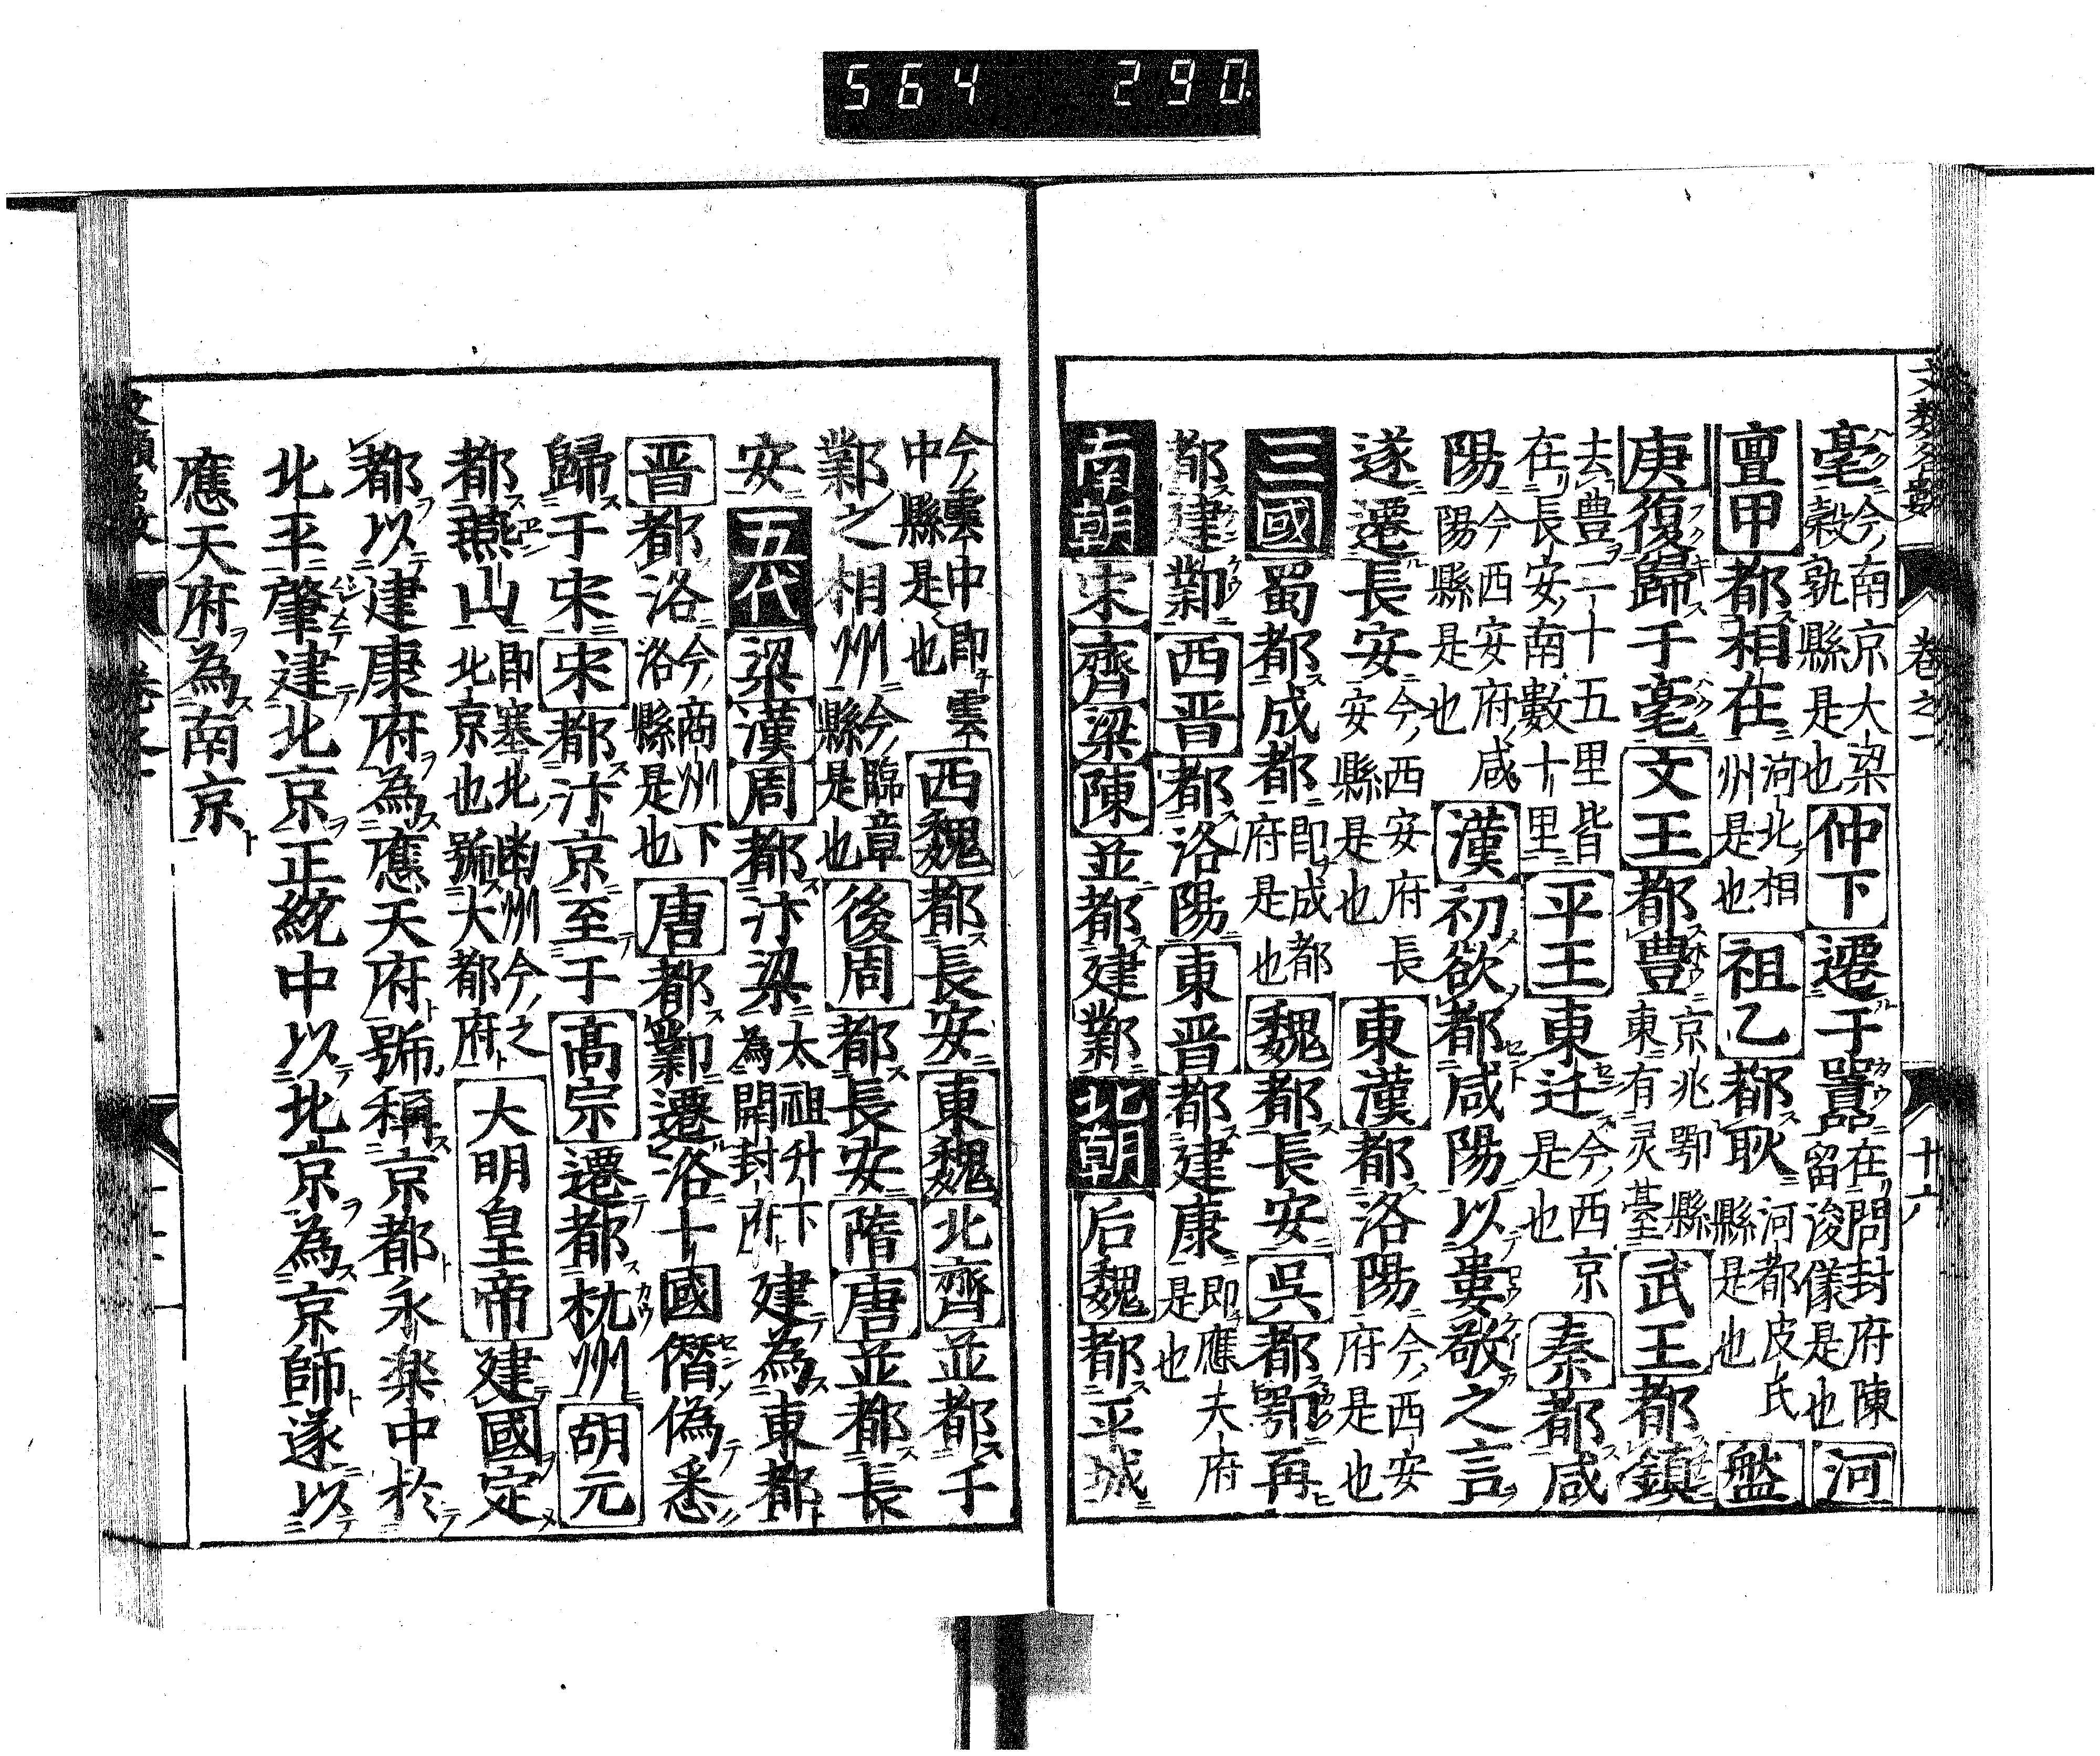 564 290
亳今南京大梁穀孰縣是也仲下遷于囂在問封府陳留浚儀是也河
亶甲都相在河北相州是也祖乙都耿河都皮氏縣是也盤
庚復歸于亳文王都豊京兆鄠縣東有灵䑓武王都鎬
去豊二十五里皆在長安南數十里平王東迁今西京是也秦都咸
陽今西安府咸陽縣是也漢初欲都咸陽以婁敬之言
遂遷長安今西安府長安縣是也東漢都洛陽今西安府是也
三國蜀都成都即成都府是也魏都長安吳都鄂再
都建鄴西晋都洛陽東晋都建康即應天府是也
南朝宋齊梁陳並都建鄴北朝后魏都平城
今雲中即雲中縣是也西魏都長安東魏北齊並都于
鄴之相州今臨章縣是也後周都長安隋唐並都長
安五代梁漢周都汴梁太祖升卞為開封府建為東都
晋都洛今商州下洛縣是也唐都鄴遷洛十國僭偽悉
歸于宋宋都汴京至于高宗遷都杭州胡元
都燕山即塞北幽州今之北京也號大都府大明皇帝建國定
都以建康府為應天府號稱京都永楽中於
北平肇建北京正統中以北京為京師遂以
應天府為南京
卷之一
十六